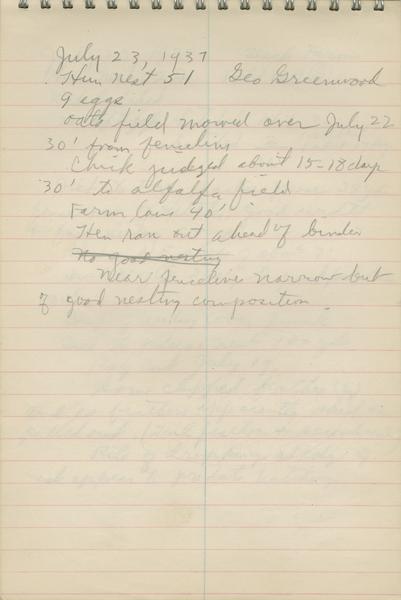 July 23, 1937
Hen nest 51 Geo Greenwood
9 eggs
oats field mowed over July 22
30' from fenceline
Chick judged about 15-18 days
30' to alfalfa field
Farm lane 40'
Hen ran out ahead of binder
No good nesting
Near fenceline narrow but
of good nesting composition.